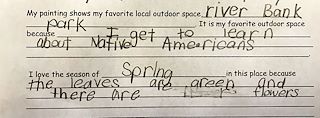 My painting shows my favorite local outdoor space river Bank
park It is my favorite outdoor space
because I get to learn
about Native Americans
I love the season of Spring in this place because
the leaves are green and
there are flowers